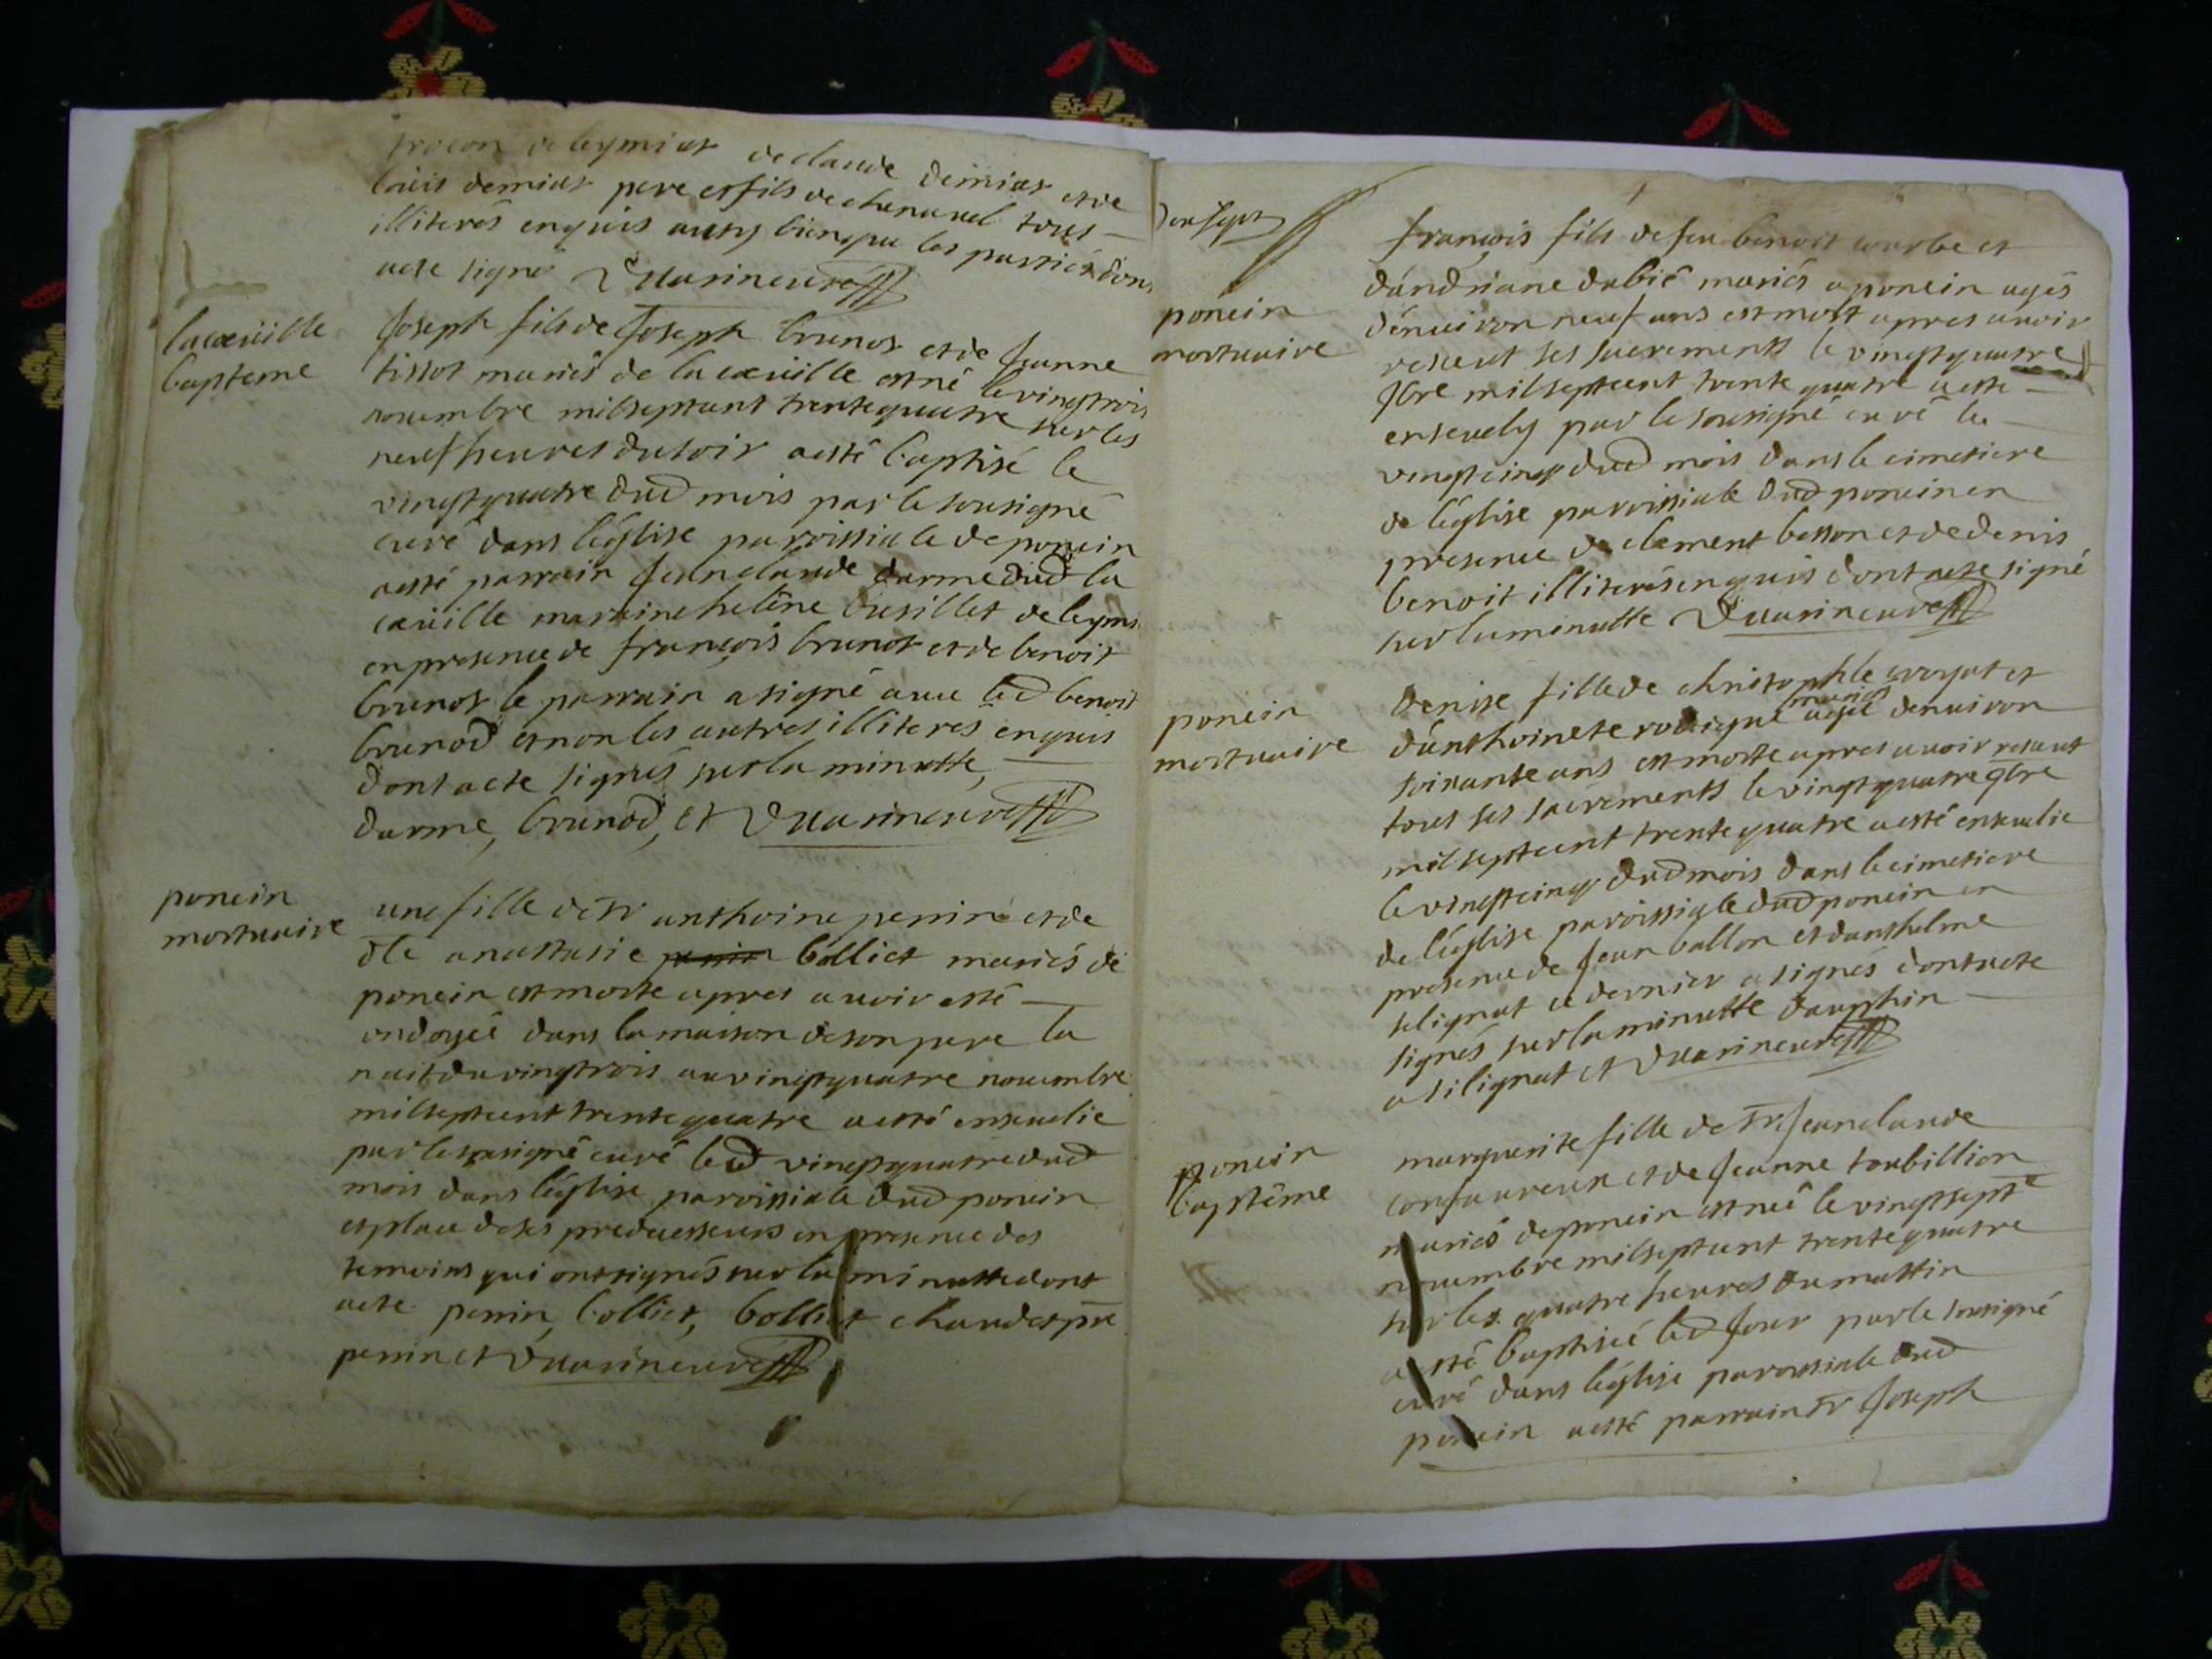 de claude demiat et de
loüis demiat pere et fils de chenavel tous
illiterés enquis aussy bien que les parties dont
acte signé Duarin curé
lacueuille
bapteme
Joseph fils de Joseph brunot et de Jeanne
tissot mariés de la cueuille est né le vingt trois
novembre mil sept cent trente quatre sur les
neuf heures du soir a esté baptisé le
vingt quatre dud mois par le sousigné
curé dans l'église paroissiale de poncin
a esté parrain Jean claude darme dud la
cueuille marraine helêne busillet de leym
en presence de françois brunot et de benoit
brunot le parrain a signé avec led benoit
brunod et non les autres illiteres enquis
dont acte signés sur la minutte,
darme, brunod, et Duarin curé
poncin
mortuaire
une fille de sr anthoine perrin et de
dle anastasie bolliet mariés de
poncin est morte apres avoir esté
ondoyée dans la maison de son pere la
nuit du vingt trois au vingt quatre novembre
mil sept cent trente quatre a esté ensevelie
par le sousigné curé led vingt quatre dud
mois dans l'église paroissiale dud poncin
et place de ses predecesseurs en presence des
temoins qui ont signés sur la minutte dont
acte perrin, bolliet, bolliet chaudet pre
perrin et Duarin curé
dix sept
poncin
mortuaire
françois fils de feu benoit courbe et
d'andriane dubié mariés a poncin agés
d'environ neuf ans est mort apres avoir
receut ses sacrements le vingt quatre
9bre mil sept cent trente quatre a esté
ensevely par le sousigné curé le
vingt cinq dud mois dans le cimetiere
de l'église paroissiale dud poncin en
presence de clement besson et de denis
benoit illiterés enquis dont acte signé
sur la minutte Duarin curé
poncin
mortuaire
denise fille de christophle et
d'anthoinete mariés agée d'environ
soixante ans est morte apres avoir receut
tous ses sacrements le vingt quatre 9bre
mil sept cent trente quatre a esté ensevelie
le vingt cinq dud mois dans le cimetiere
de l'église paroissiale dud poncin en
presence de Jean ballon et d'anthelme
silignat ce dernier a signés dont acte
signés sur la minutte dauphin
a silignat et Duarin curé
poncin
baptême
marguerite fille de sr Jean claude
confavreux et de Jeanne toubillion
mariés de poncin est née le vingt sept
novembre mil sept cent trente quatre
sur les quatre heures du mattin
a esté baptisée led Jour par le sousigné
curé dans l'église paroissiale dud
poncin a esté parrain sr Joseph